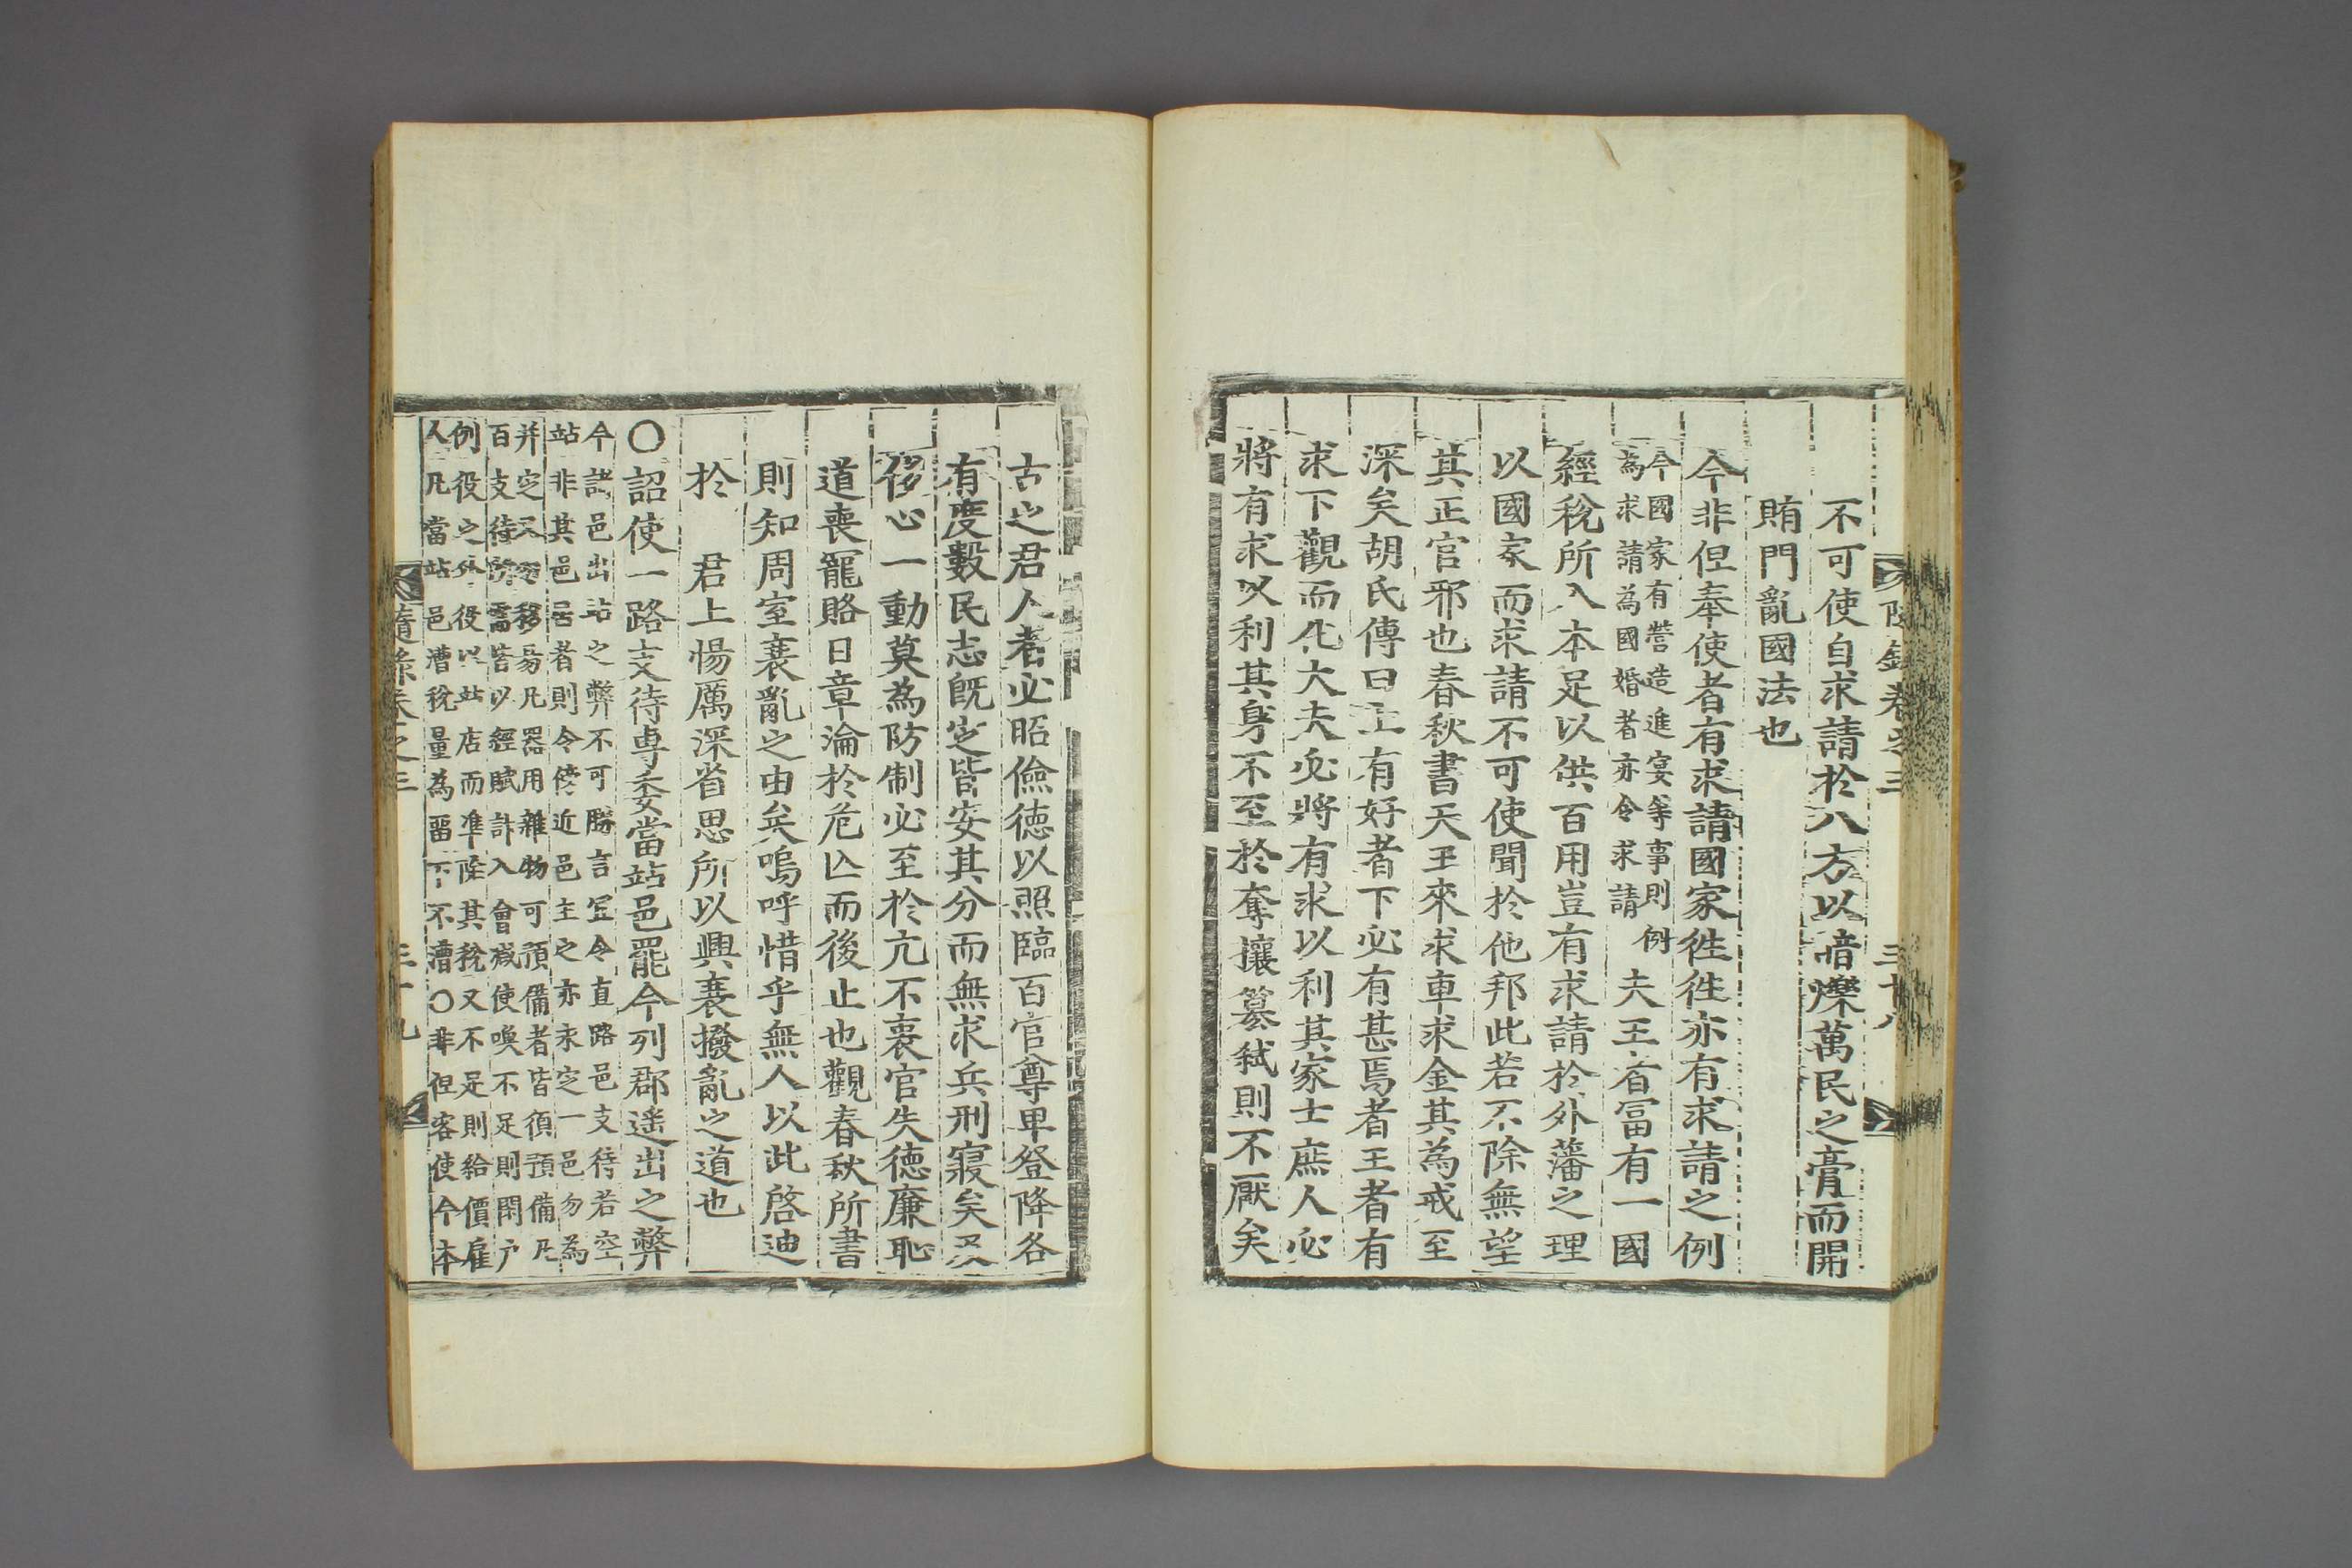 隨錄卷之三
三十八
不可使自求請於八方以暗爍萬民之膏而開
賄門亂國法也
今非但奉使者有求請國家徃徃亦有求請之例
今國家有營造進宴等事則例
為求請為國婚者亦令求請
夫王者冨有一國
經稅所入本足以供百用豈有求請於外藩之理
以國家而求請不可使聞於他邦此若不除無望
其正官邪也春秋書天王來求車求金其為戒至
深矣胡氏傳曰上有好者下必有甚焉者王者有
求下觀而化大夫必將有求以利其家士庶人必
將有求以利其身不至於奪攘簒弑則不厭矣
古之君人者必昭儉德以照臨百官尊卑登降各
有度數民志旣定皆安其分而無求兵刑寢矣及
侈心一動莫為防制必至於亢不衷官失德廉恥
道喪寵賂日章淪於危亾而後止也觀春秋所書
則知周室衰亂之由矣嗚呼惜乎無人以此啓迪
於 君上惕厲深省思所以興衰撥亂之道也
〇詔使一路支待專委當站邑罷今列郡遥出之弊
今諸邑出站之弊不可勝言宜令直路邑支待若空
站非其邑居者則令傍近邑主之亦永定一邑勿為
并定又移易凡器用雜物可預備者皆須預備凡
百支待所需皆以經賦計入會减使喚不足則閑戶
例役之外役以站店而凖除其稅又不足則給價雇
人凡當站邑漕稅量為畱下不漕〇非但客使今本
隨錄卷之三
三十九